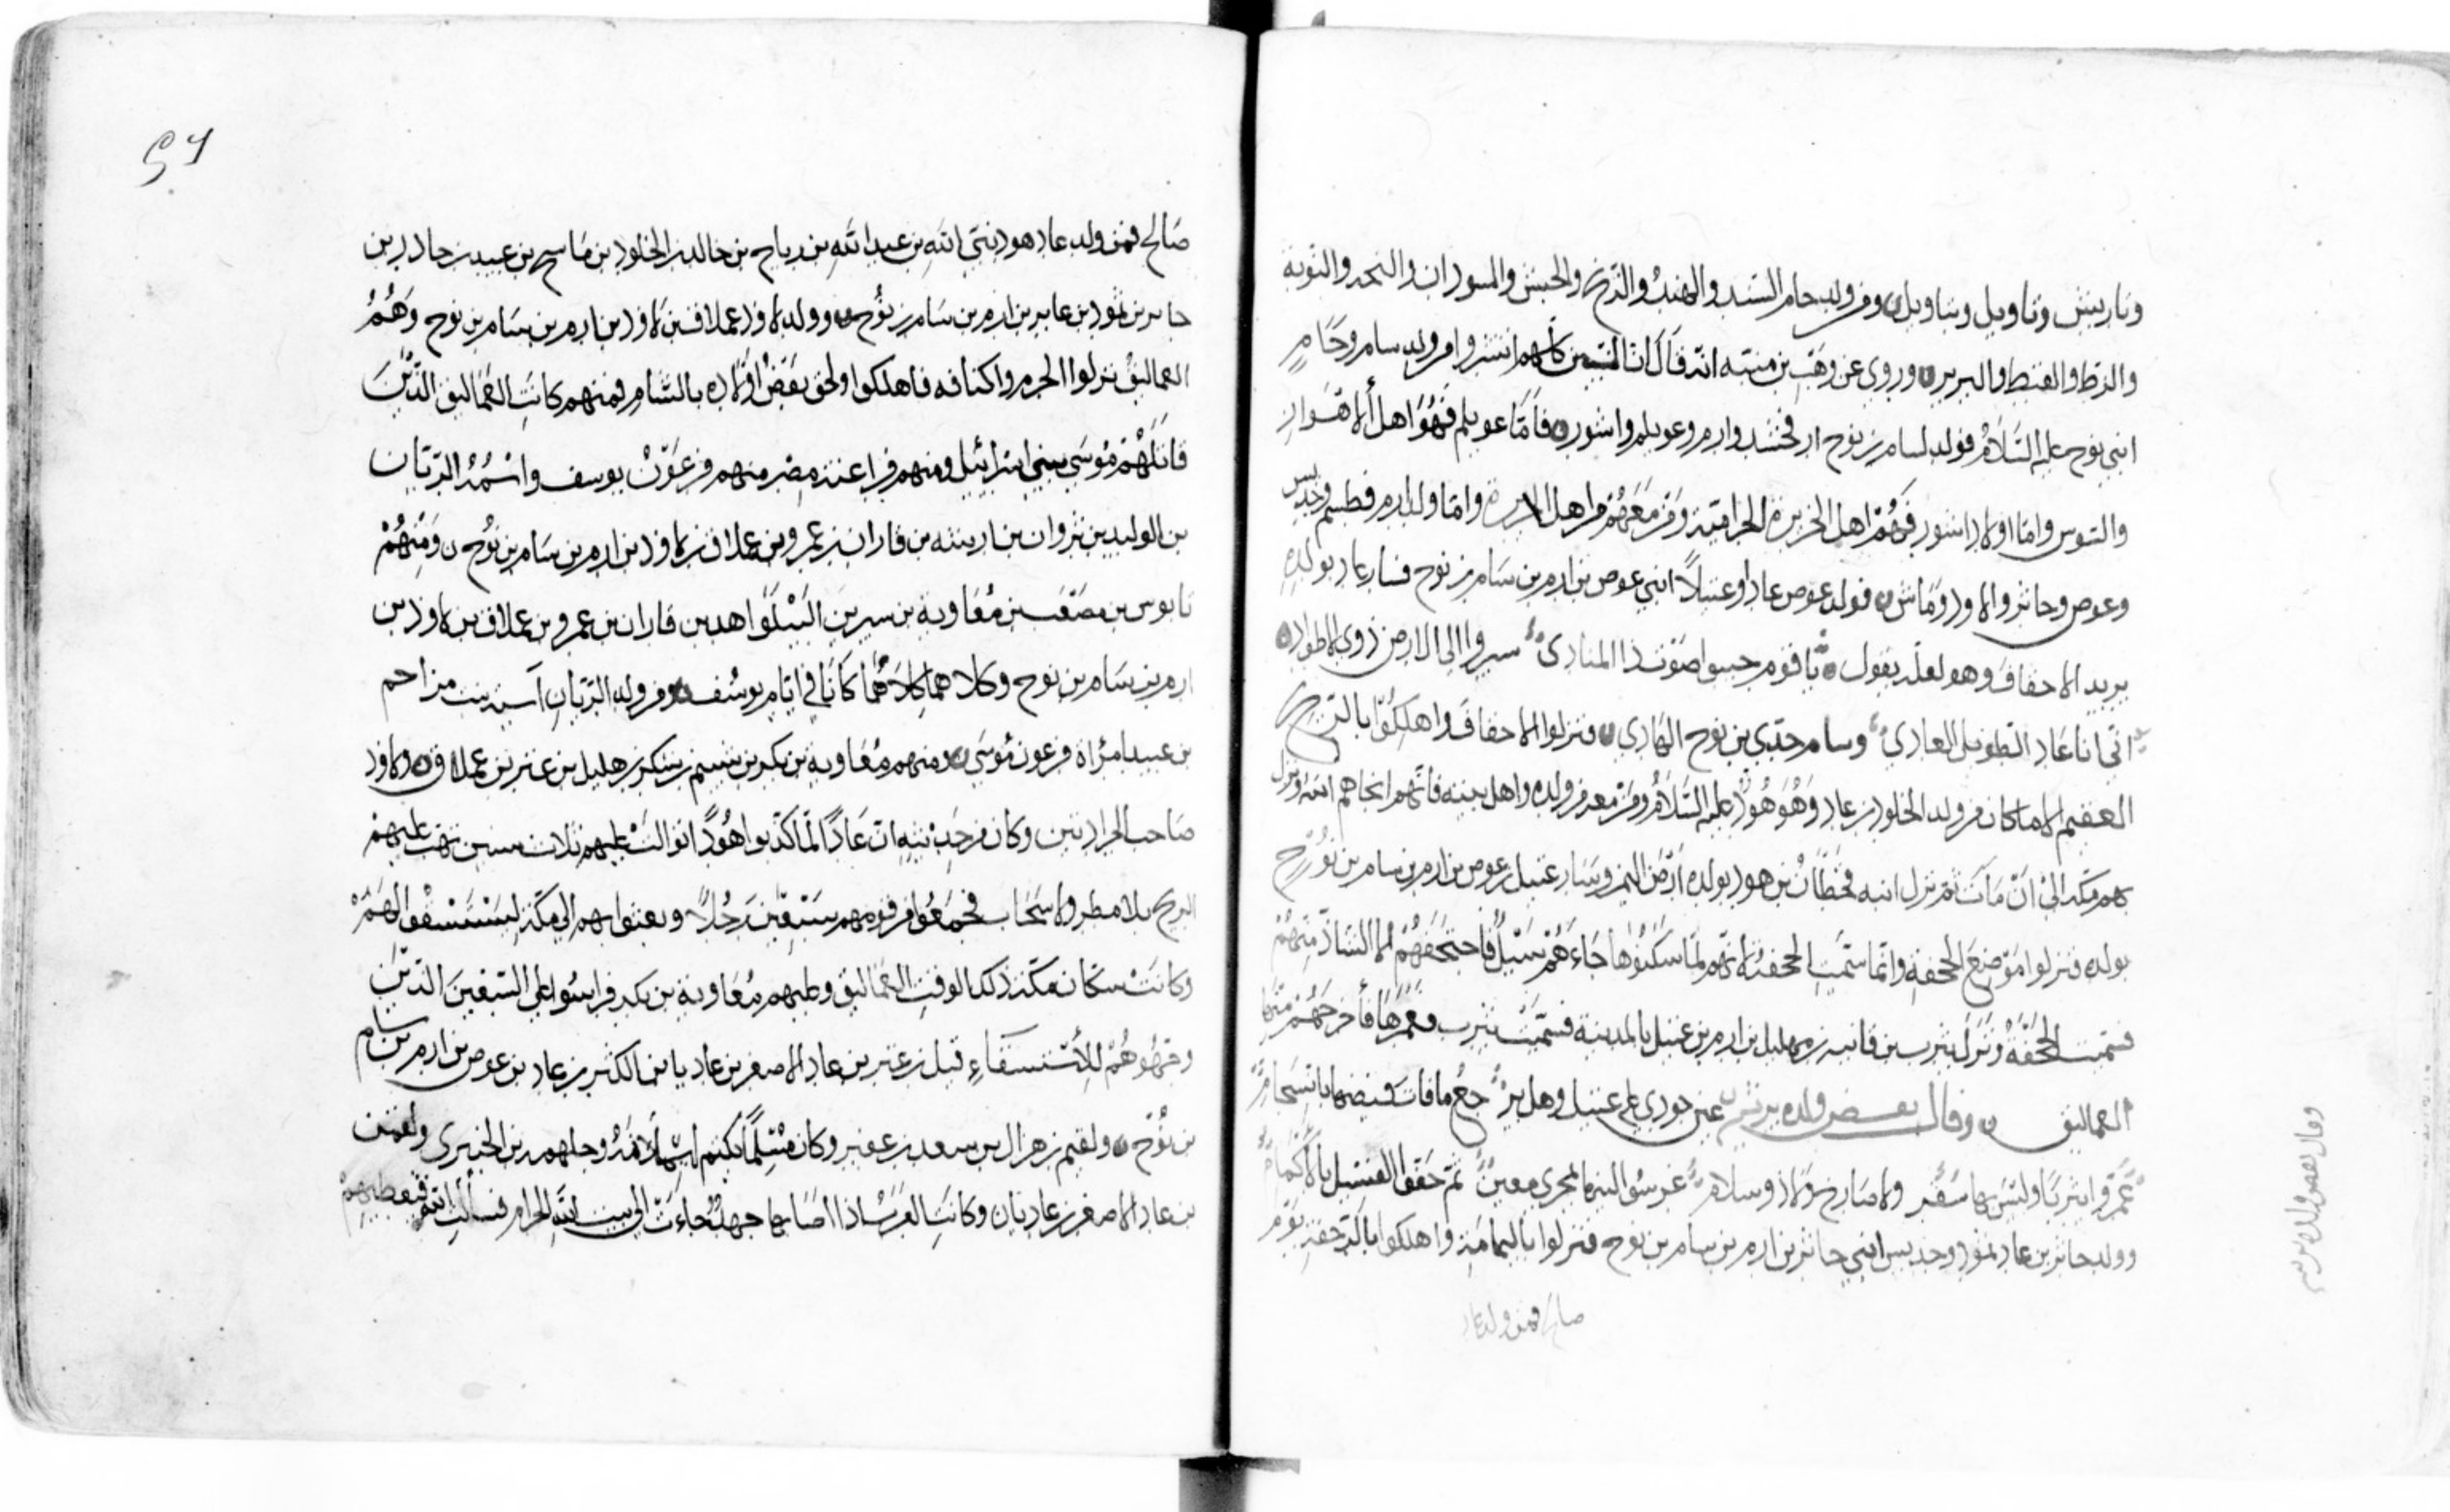 وناريش وتاويل ونباويل ومن ولد حام السند والهند والزنج والحبش والسودان والبجه والنوبة
والزط والقبط والبربر وروي عن وهب بن منبه انه قال ان النبيين كلهم انتشروا من ولد سام وحام
ابني نوح عليه السلام فولد لسام بن نوح ارفخشد وارم وعويلم واشور فاما عويلم فهو اهل الاهواز
والسوس واما اولاد اشور فهم اهل الجزيرة الجرامقة ومن معهم من اهل الجزيرة واما ولد ارم فطسم وجديس
وعوص وجاثر ولاوذ وماش فولد عوص عادا وعبيلا ابني عوص بن ارم بن سام بن نوح فسار عاد بولده
يريد الاحقاف وهو لعله يقول يا قوم جيبوا صوت ذا المنادي سيروا الى الارض ذوي الاطواد
اني انا عاد الطويل العادي وسام جدي بن نوح الهادي فنزلوا الاحقاف واهلكوا بالريح
العقيم الا ما كان من ولد الخلود بن عاد وهو هود عليه السلام ومن معه من ولده واهل بيته فانهم انجاهم الله ونزل
بهم مكه الى ان مات ثم نزل ابنه قحطان بن هود بولده ارض اليمن وسار عبيل بن عوص بن ارم بن سام بن نوح
بولده فنزلوا موضع الجحفة وانما سميت الجحفة لانهم لما سكنوها جاءهم سيل فاجتحفهم الا الشاذ منهم
فسميت الجحفة ونزل يثرب بن قانيه بن مهليل بن ارم بن عبيل بالمدينة فسميت يثرب فعمرها فأخرجهم منها
العماليق وقال بعض ولده يرثيهم عين جودي على عبيل وهل ير جع ما فات فيضها بانسجام
عمروا يثربا وليس بها سفر ولا صارخ ولا ذو سلام غرسوا لينها بمجرى معين ثم حفوا الفسيل بالاكمام
وولد جاثر بن عاد ثمود وجديس ابني جاثر بن ارم بن سام بن نوح فنزلوا باليمامة واهلكوا بالرجفة قوم
صالح فمن ولد عاد
وقال بعض ولده يرثيه
٤٦
صالح فمن ولد عاد هود نبي الله بن عبد الله بن رباح بن خالد بن الخلود بن ماسح بن عبيد بن حادر بن
جابر بن ثمود بن عابر بن ارم بن سام بن نوح وولد لاوذ عملاق بن لاوذ بن ارم بن سام بن نوح وهم
العماليق نزلوا الحرم واكنافه فاهلكوا ولحق بعض اولاده بالشام فمنهم كانت العماليق الذين
قاتلهم موسى ببني اسرائيل ومنهم فراعنة مصر منهم فرعون يوسف واسمه الريان
بن الوليد بن ثروان بن اريشه بن قاران بن عمرو بن عملاق بن لاوذ بن ارم بن سام بن نوح ومنهم
قابوس بن مصعب بن معاوية بن سيرين البيلواهد بن قاران بن عمرو بن عملاق بن لاوذ بن
ارم بن سام بن نوح وكلاهما كلاهما كانا في ايام يوسف ومن ولد الريان آسية بنت مزاحم
بن عبيد امراة فرعون موسى ومنهم معاوية بن بكر بن بسيم بن بكر بن هليل بن عتر بن عملاق ولاوذ
صاحب الجرادتين وكان من حديثه ان عادا لما كذبوا هودا توالت عليهم ثلاث سنين تهب عليهم
الريح بلا مطر ولا سحاب فجمعوا من قومهم سبعين رجلا وبعثوا بهم الى مكة ليستسقوا لهم
وكانت سكان مكة ذلك الوقت العماليق وعليهم معاوية بن بكر فراسوا على السبعين الذين
وجهوهم للاستسقاء قيل بن عتر بن عاد الاصغر بن عاد بانه الكثر بن عاد بن عوص بن ارم بن سام
بن نوح ولقيم بن هزال بن سعد بن عفير وكان مسلما يكتم اسلامه وجلهمه بن الخيبري ولقمن
بن عاد الاصغر بن عاد بان وكانت العرب اذا اصابها جهد جاءت الى بيت الله الحرام فسالت الله فيعطيهم